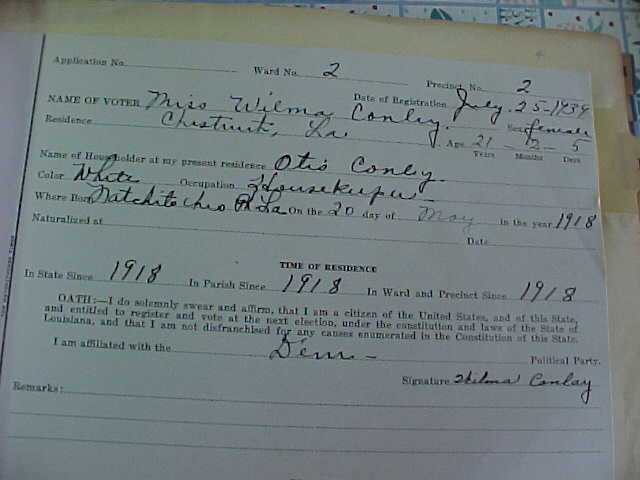 Application No.
Ward No. 2
Precinct No. 2
NAME OF VOTER Miss Wilma Conley.
Date of Registration July. 25-1939
Residence Chestnut, La
Sex female
Age 21 - 2 - 5
Years Months Days
Name of Householder at my present residence Otis Conley.
Color White Occupation Housekeeper
Where Born Natchitoches P. La On the 20 day of May in the year 1918
Naturalized at Date
TIME OF RESIDENCE
In State Since 1918 In Parish Since 1918 In Ward and Precinct Since 1918
OATH:—I do solemnly swear and affirm, that I am a citizen of the United States, and of this State,
and entitled to register and vote at the next election, under the constitution and laws of the State of
Louisiana, and that I am not disfranchised for any causes enumerated in the Constitution of this State.
I am affiliated with the Dem - Political Party.
Signature Wilma Conlay
Remarks: